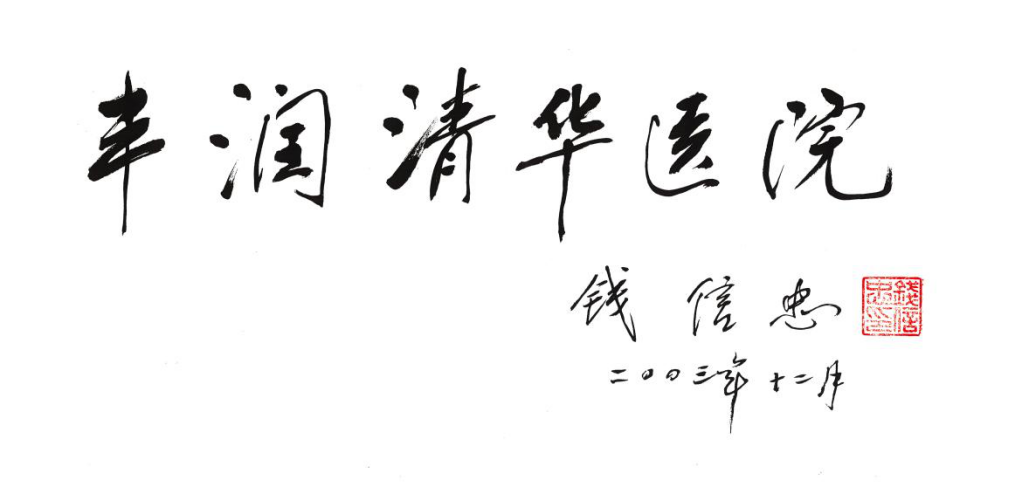 丰润清华医院
钱信忠
錢信忠印
二〇〇三年十二月